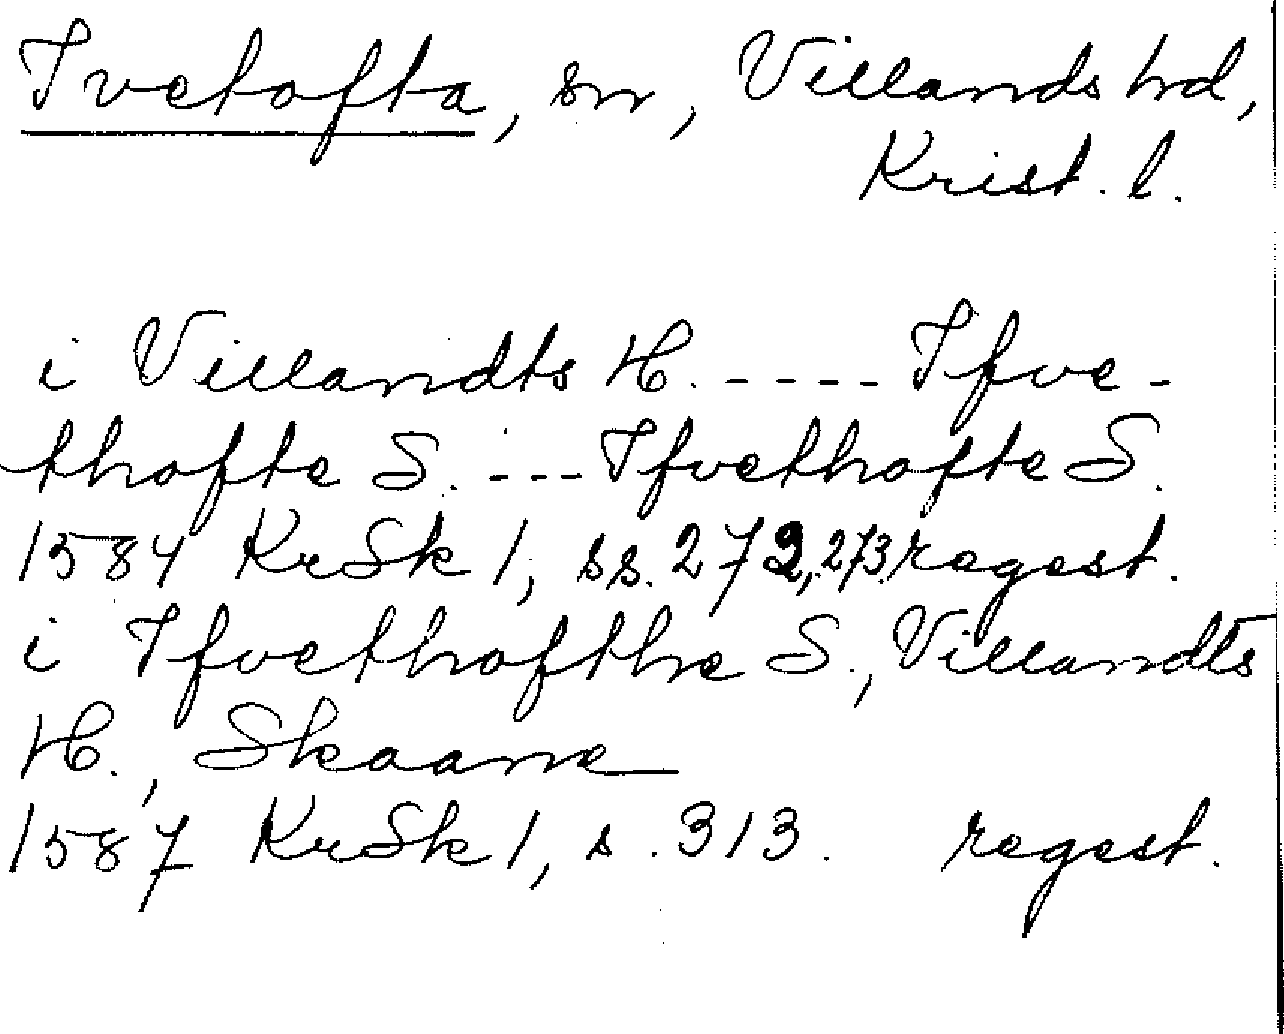 Ivetofta, sn, Villands hd,
Krist. l.
i Villandts H. ---- Ifve-
thofte S. --- Ifvethofte S.
1584 KrSk 1, ss. 272, 273. regest.
i Ifvethofthe S., Villandts
H., Skaane
1587 KrSk 1, s. 313. regest.